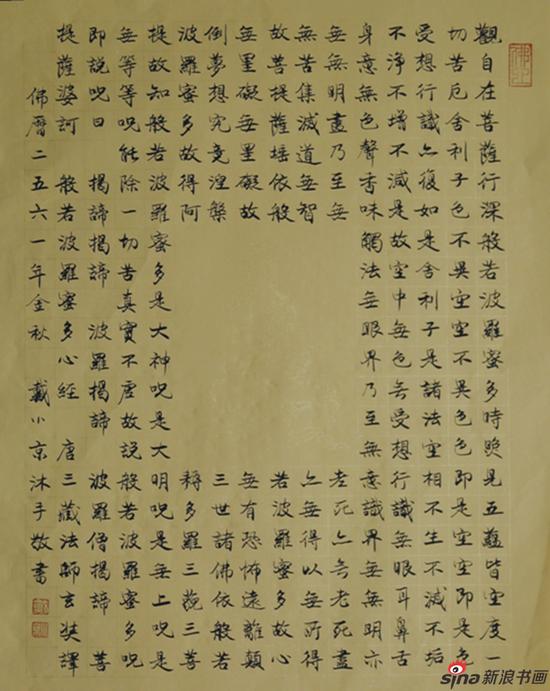 觀自在菩薩行深般若波羅蜜多時照見五蘊皆空度一
切苦厄舍利子色不異空空不異色色即是空空即是色
受想行識亦復如是舍利子是諸法空相不生不滅不垢
不淨不增不減是故空中無色无受想行識無眼耳鼻舌
身意無色聲香味觸法無眼界乃至無意識界無無明亦
無無明盡乃至無 老死亦无老死盡
無苦集滅道無智 亦無得以無所得
故菩提薩埵依般 若波羅蜜多故心
無罣礙無罣礙故 無有恐怖遠離顛
倒夢想究竟涅槃 三世諸佛依般若
波羅蜜多故得阿 耨多羅三藐三菩
提故知般若波羅蜜多是大神呪是大明呪是無上呪是
無等等呪能除一切苦真實不虛故說般若波羅蜜多呪
即說呪曰 揭諦揭諦 波羅揭諦 波羅僧揭諦 菩
提薩婆訶 般若波羅蜜多心經 唐三藏法師玄奘譯
佛曆二五六一年金秋 戴小京沐手敬書
sina新浪书画